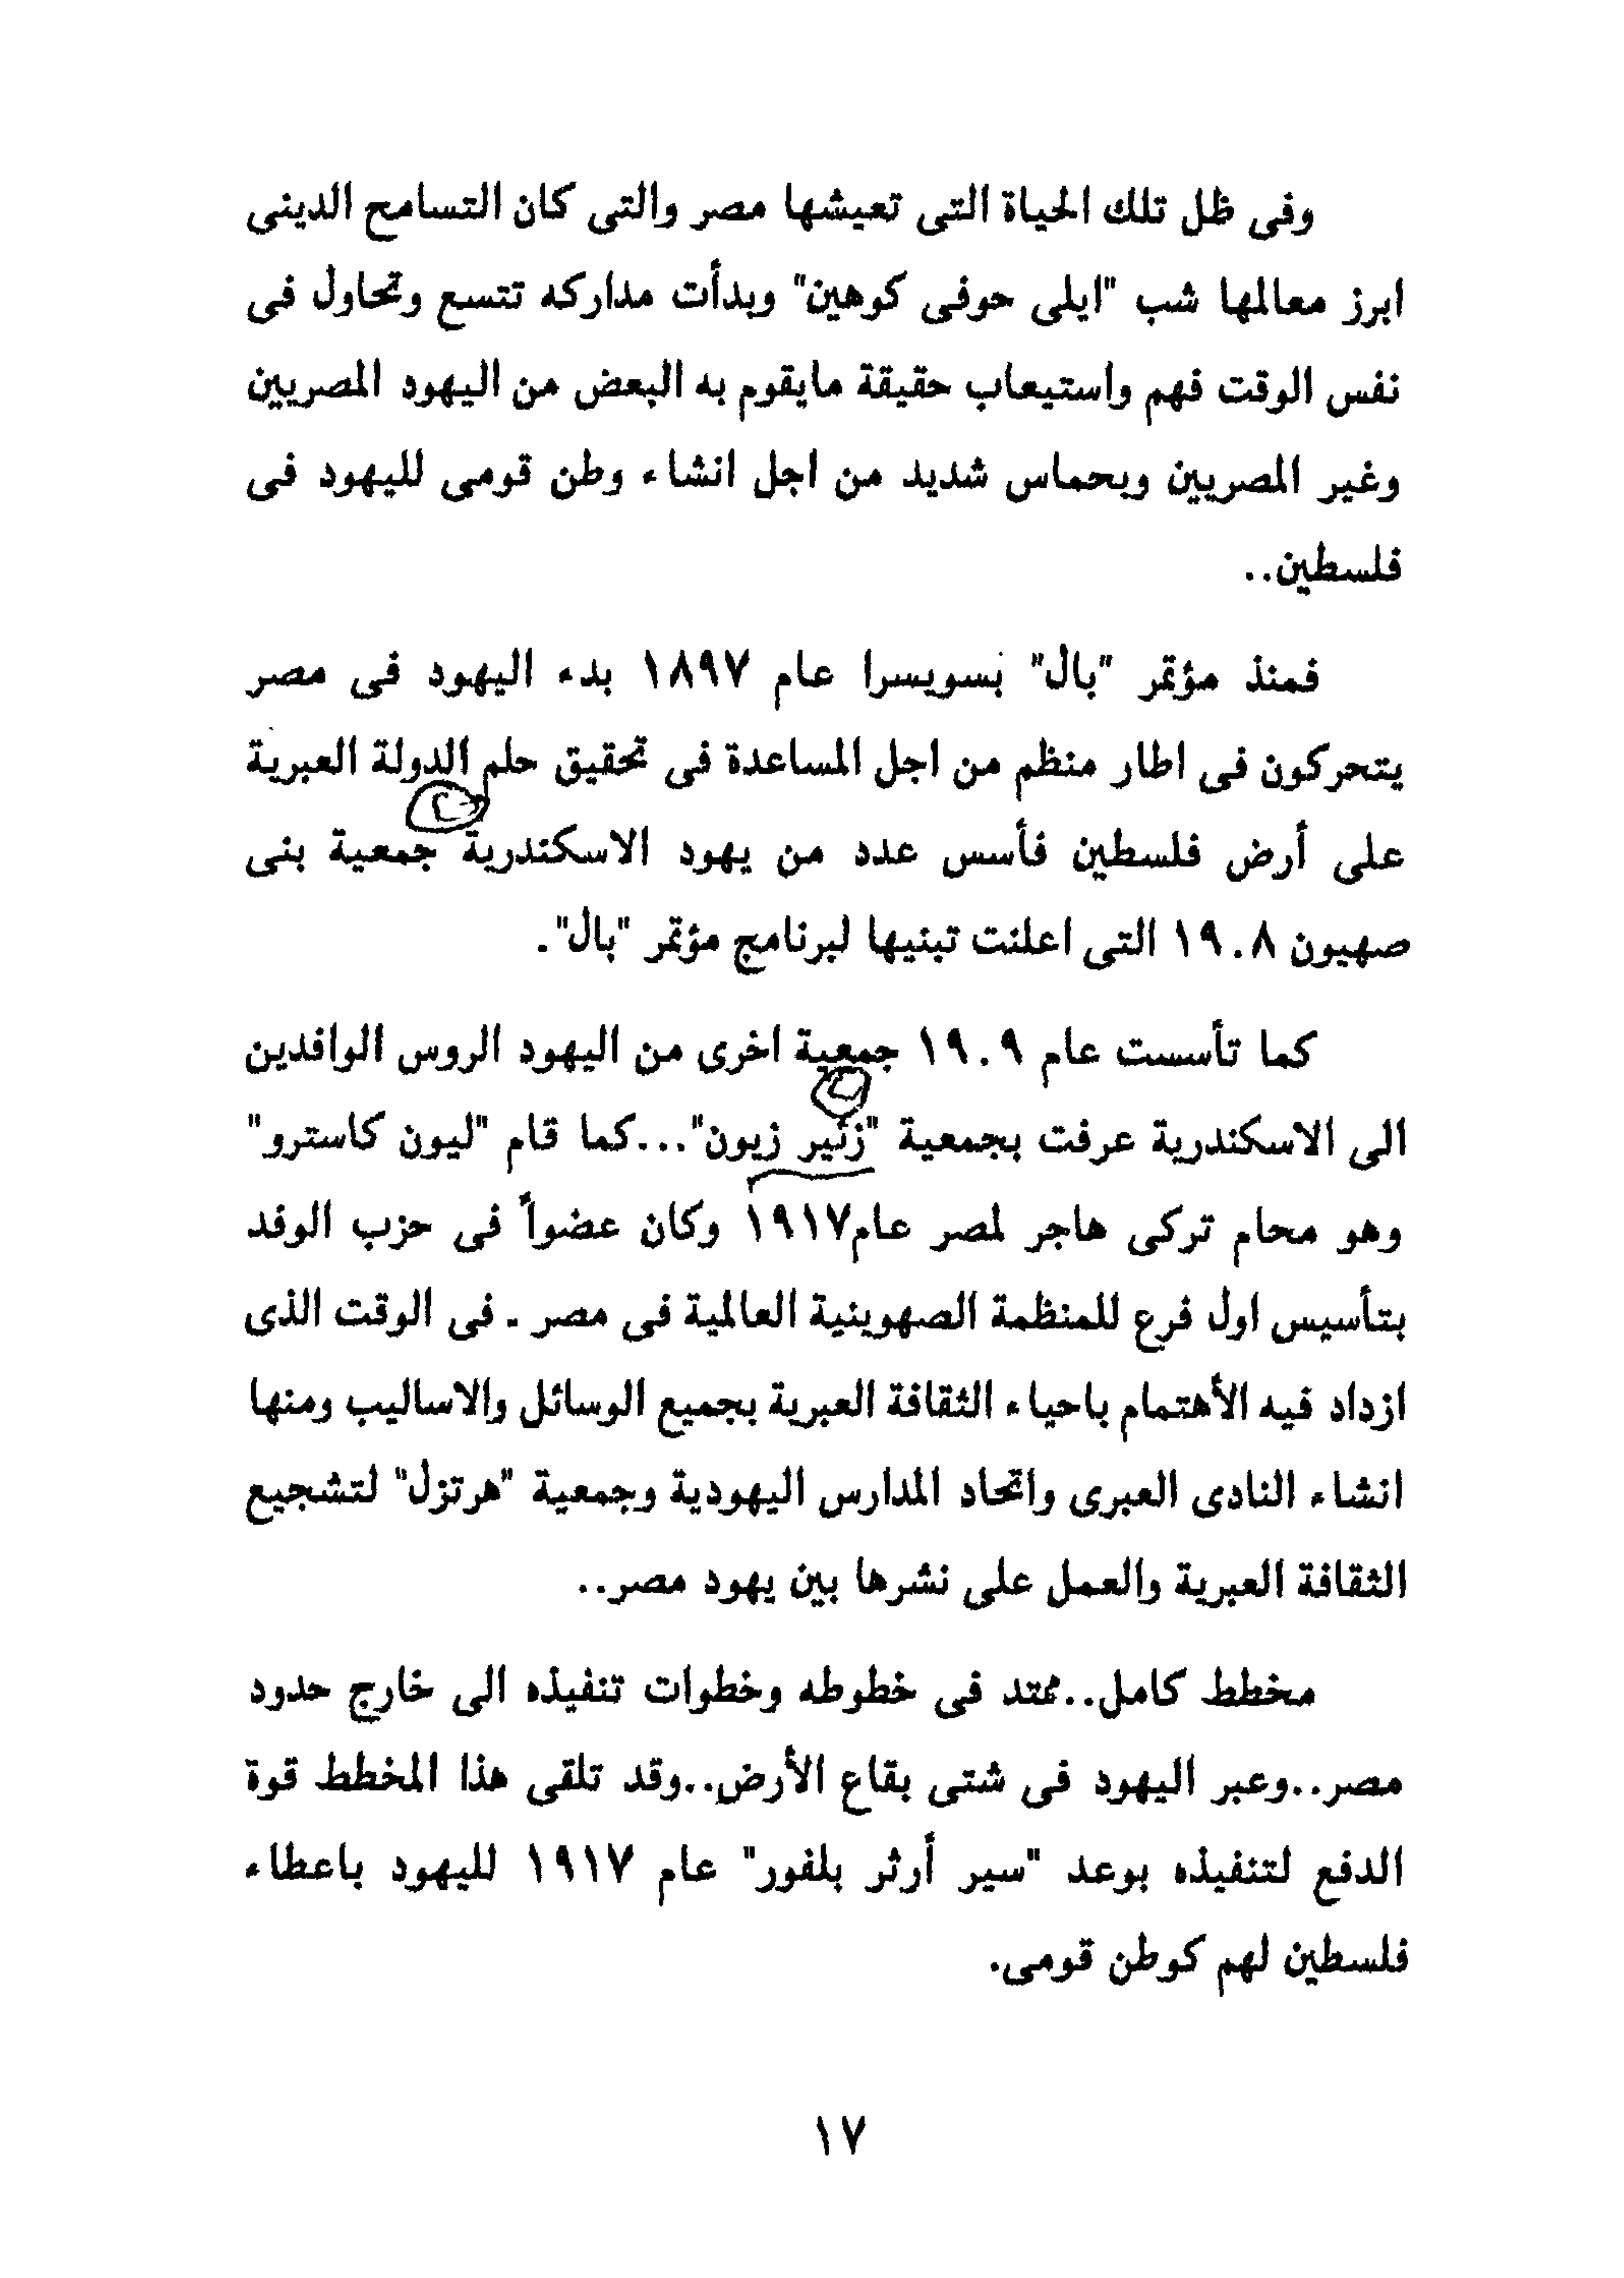 وفى ظل تلك الحياة التى تعيشها مصر والتى كان التسامح الدينى
ابرز معالمها شب "ايلى حوفى كوهين" وبدأت مداركه تتسع وتحاول فى
نفس الوقت فهم واستيعاب حقيقة مايقوم به البعض من اليهود المصريين
وغير المصريين وبحماس شديد من اجل انشاء وطن قومى لليهود فى
فلسطين..
فمنذ مؤتمر "بال" بسويسرا عام ١٨٩٧ بدء اليهود فى مصر
يتحركون فى اطار منظم من اجل المساعدة فى تحقيق حلم الدولة العبرية
على أرض فلسطين فأسس عدد من يهود الاسكندرية جمعية بنى
صهيون ١٩٠٨ التى اعلنت تبنيها لبرنامج مؤتمر "بال".
كما تأسست عام ١٩٠٩ جمعية اخرى من اليهود الروس الوافدين
الى الاسكندرية عرفت بجمعية "زئير زيون"...كما قام "ليون كاسترو"
وهو محام تركى هاجر لمصر عام١٩١٧ وكان عضواً فى حزب الوفد
بتأسيس اول فرع للمنظمة الصهوينية العالمية فى مصر . فى الوقت الذى
ازداد فيه الأهتمام باحياء الثقافة العبرية بجميع الوسائل والاساليب ومنها
انشاء النادى العبرى واتحاد المدارس اليهودية وجمعية "هرتزل" لتشجيع
الثقافة العبرية والعمل على نشرها بين يهود مصر..
مخطط كامل..ممتد فى خطوطه وخطوات تنفيذه الى خارج حدود
مصر..وعبر اليهود فى شتى بقاع الأرض..وقد تلقى هذا المخطط قوة
الدفع لتنفيذه بوعد "سير أرثر بلفور" عام ١٩١٧ لليهود باعطاء
فلسطين لهم كوطن قومى.
١٧